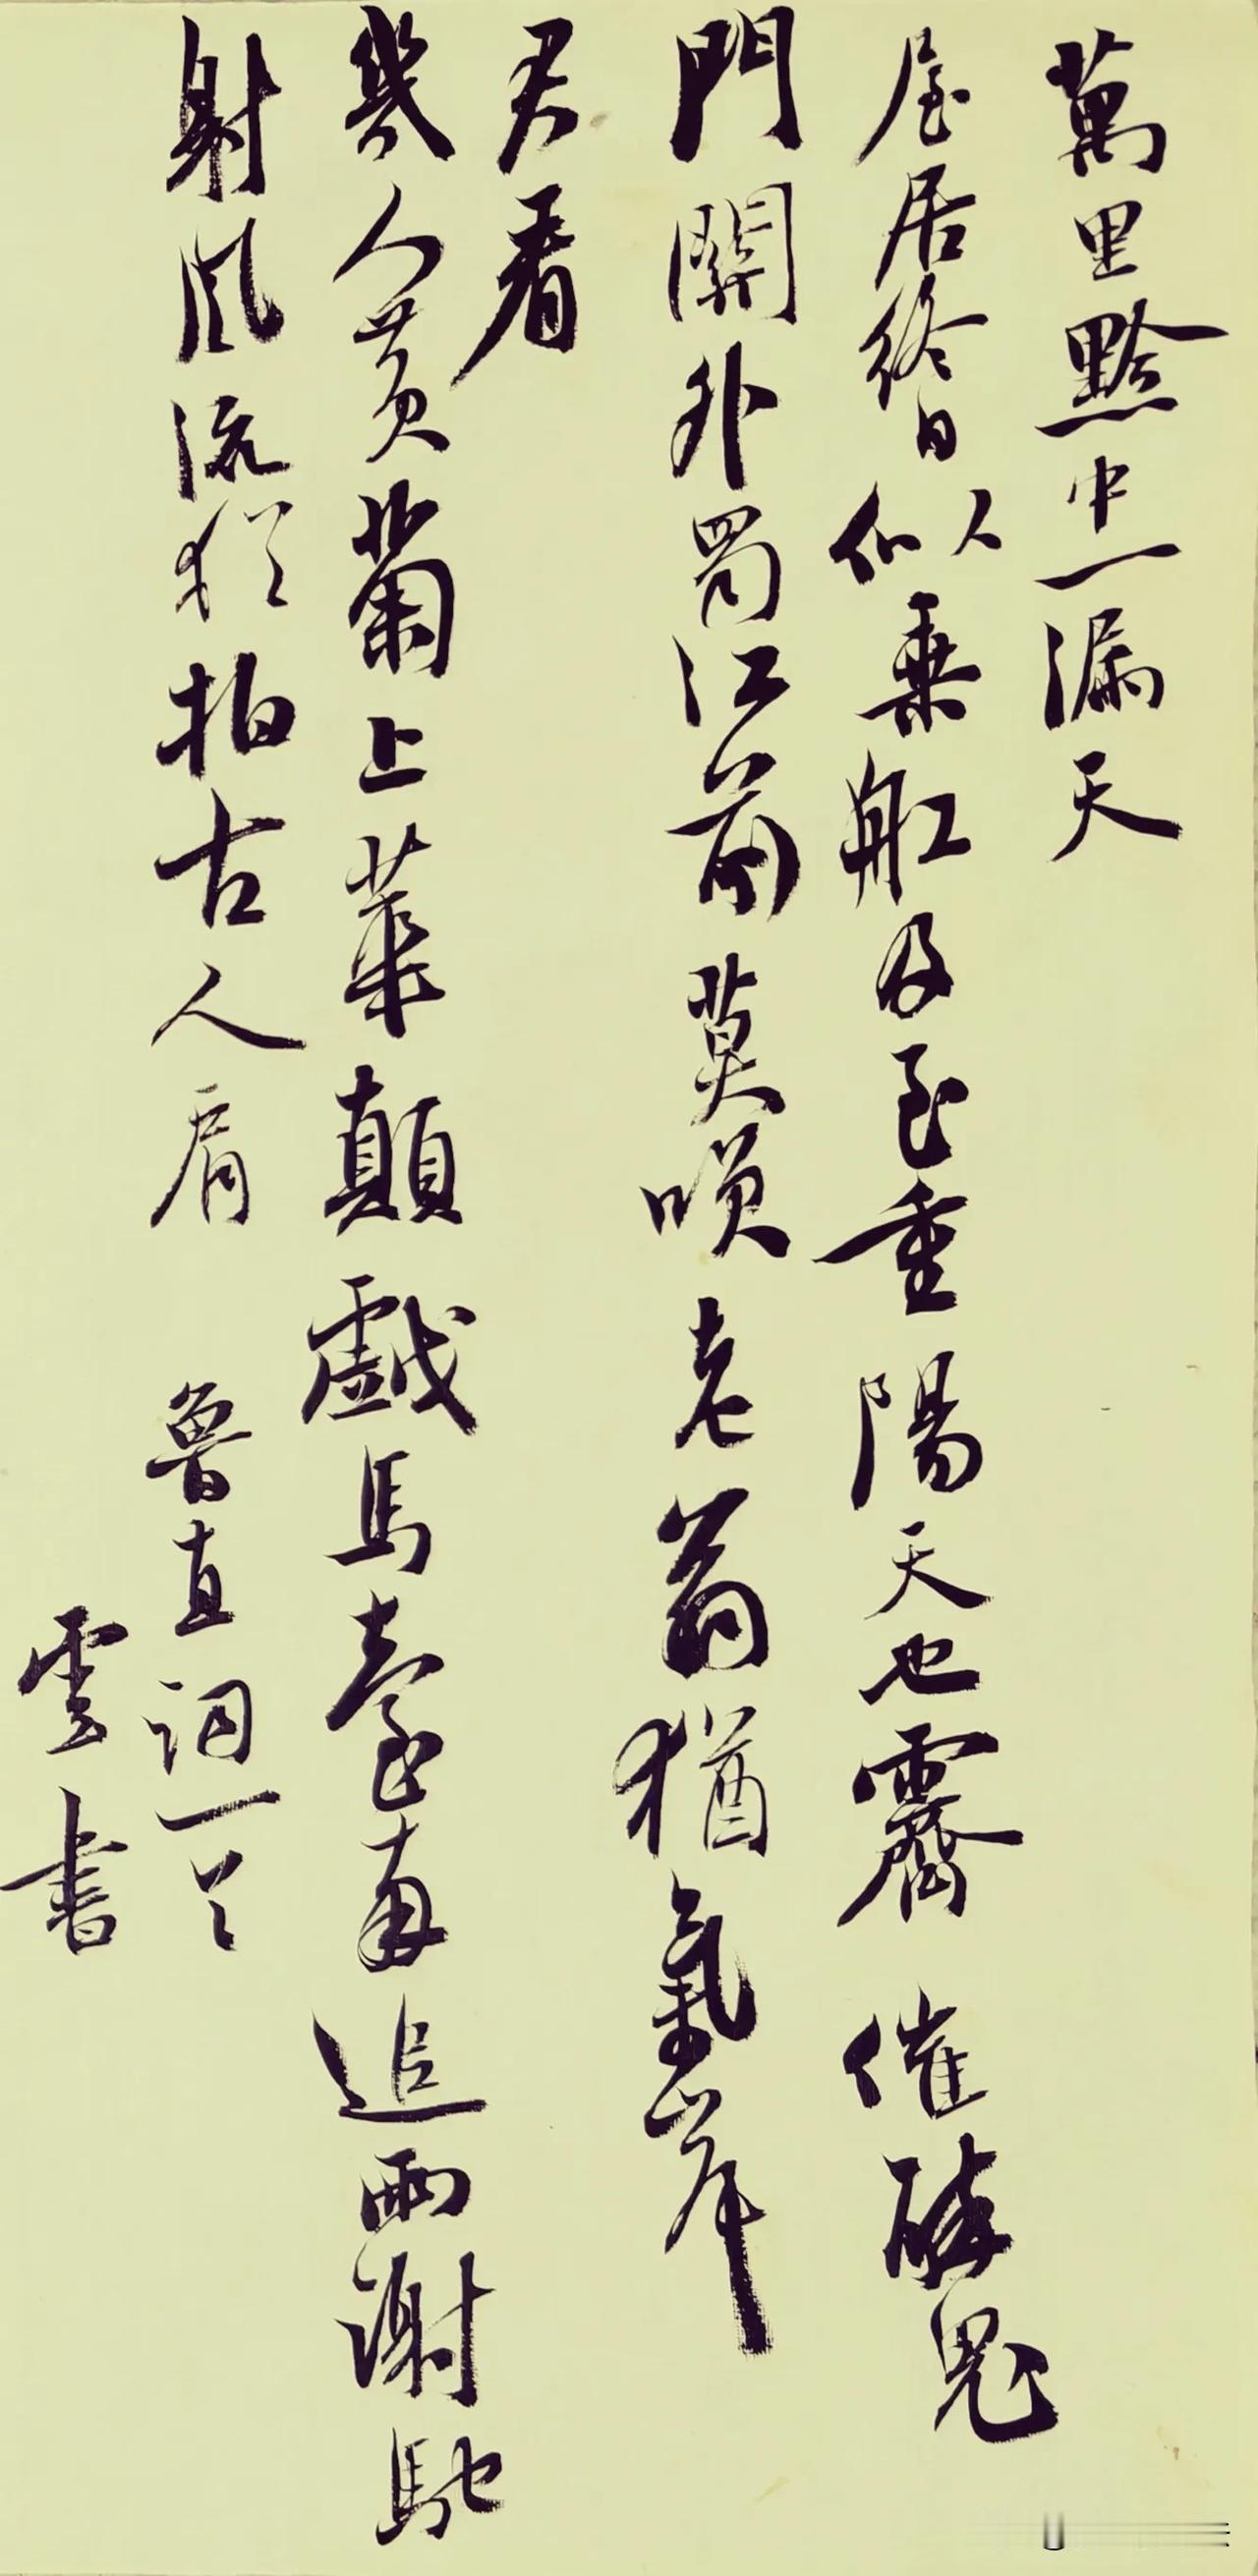 萬里黔中一漏天
屋居終日似乘舡及至重陽天也霽催醉鬼
門關外蜀江前莫咲老翁猶氣岸
君看
幾人黃菊上華顛戲馬臺南追兩謝馳
射風流猶拍古人肩 魯直詞一首
雲書